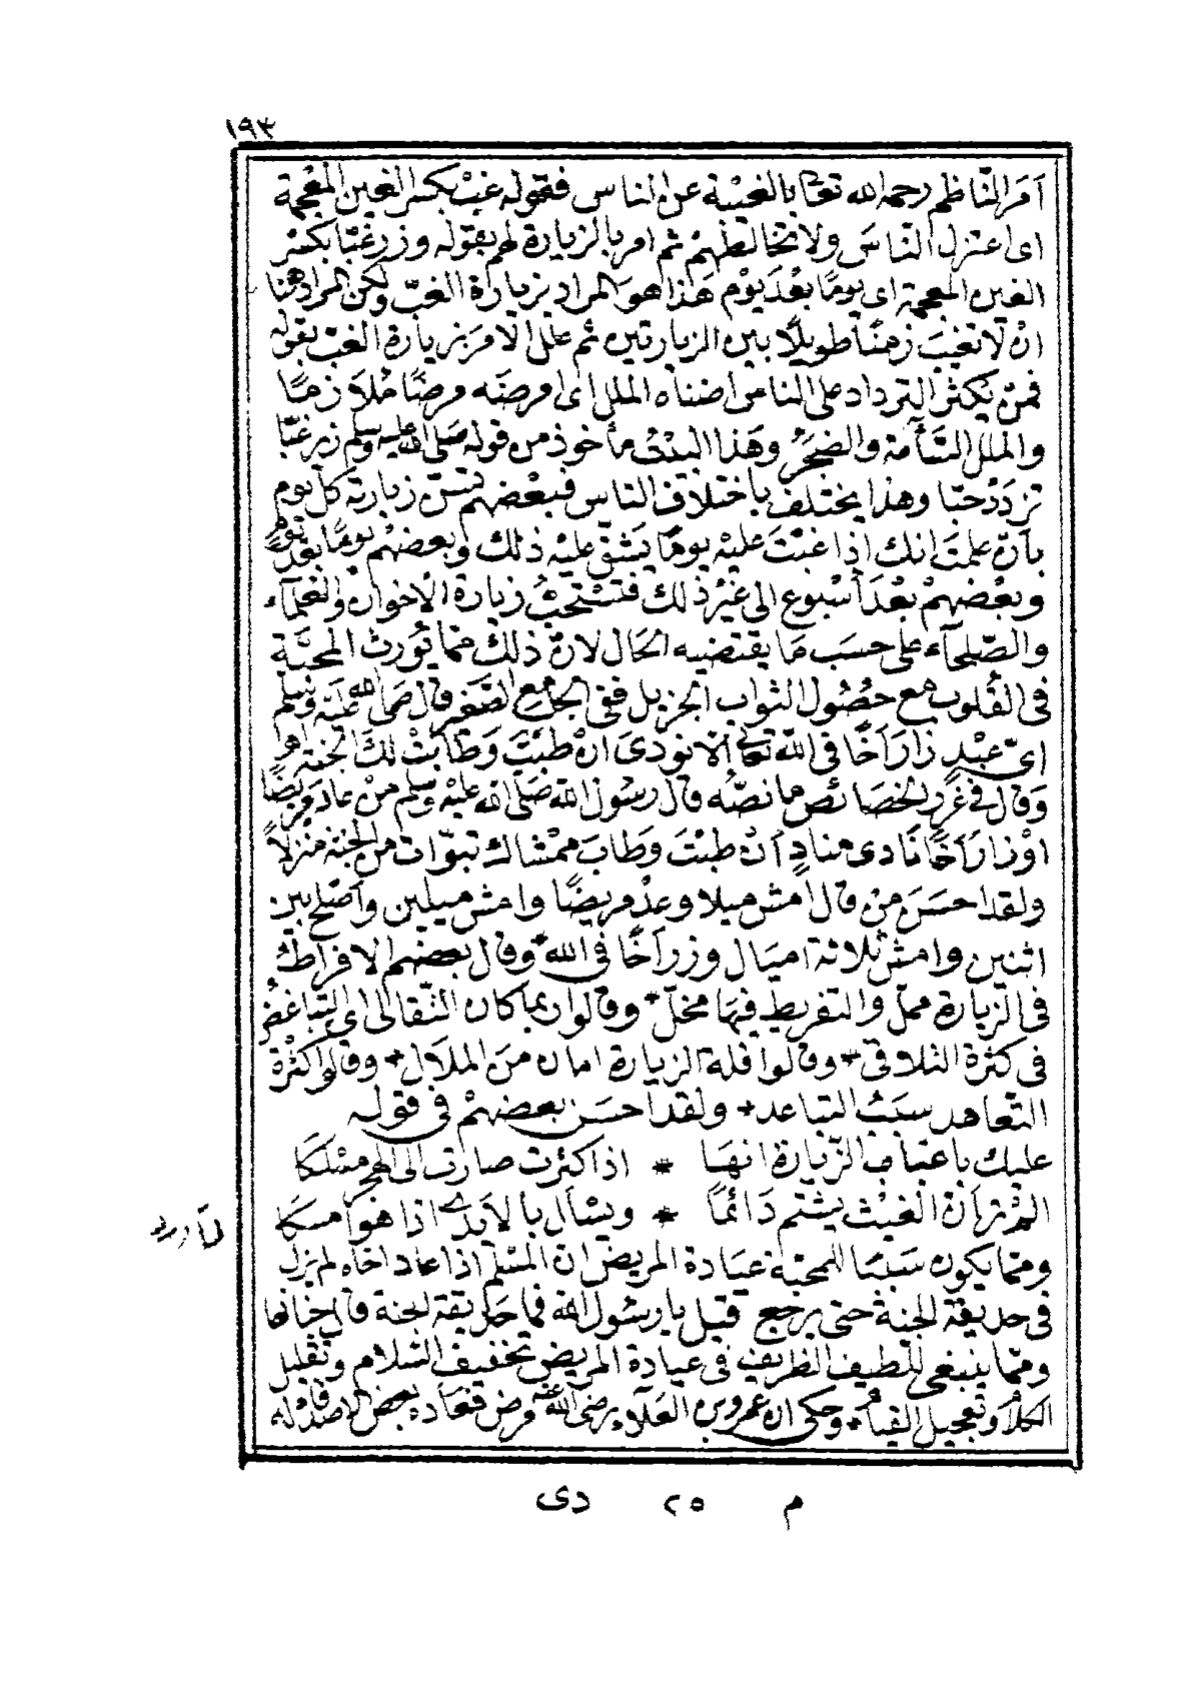 ١٩٣
اَمَرَ النّاظم رحمه الله تعا بالغيبة عن الناس فقوله غبْ بكسر الغين المعْجمة
اى اعتزل الناسَ ولا تخالطهُمْ ثم امر بالزيارة لهم بقوله وزر غبّا بكسْر
الغين المعجمة اى يومًا بعْدَ يوْم هَذا هوَ المراد بزيارة الغبّ ولكن المراد هنا
انْ لَا تغيبَ زمنًا طويلًا بين الزيارتين ثم علل الامرَ بزيارة الغبّ بقوله
فمنْ يكثر الترداد على الناس اضناه الملل اى امرضَه مرضًا مُلَازمًا
والملل السَّآمة والضجَرُ وهَذا البيْتُ مأخوذ من قوله صَلى الله عليه وسلم زر غبّا
تزدَدْ حبّا وهذا يختلف باختلاف الناس فبعْضهم تسنّ زيارته كل يوم
بأنْ علمتَ انك اذا غبْتَ عليْه يومًا يَشقّ عليْه ذلك وبعضهُمْ يومًا بعْدَ يَوْمٍ
وبعْضهمْ بعْدَ أسْبوع الى غيْر ذلك فتسْتحبُّ زيارة الاخوان والعلمآء
والصّلحآء على حسَب مَا يقتضيه الحَال لانّ ذلك ممّا يُورث المحبّة
فى القلوب مع حصُول الثواب الجزيل ففى الجامع الصَّغير قال صَلى الله عليْه وسلم
اىّ عبْدٍ زارَ اَخًا فى اللّه تعالى الا نودىَ انْ طبْتَ وَطابَتْ لكَ الجنّة اهـ
وَقال فى غررِ الخصَائص مَا نصّه قال رسُول الله صَلى الله عليْه وسلم منْ عادَ مريضًا
اوْ زارَ اَخًا نَادى منادٍ أنْ طبْتَ وَطابَ ممْشاك تبوّات من الجنّة منزلًا
ولقد احسَن منْ قال اَمْش ميلا وعدْ مريضًا وامش ميلين وأصْلح بين
اثنين وامش ثلاثة اميال وزر أخًا فى الله * وقال بعضهم الافراط
فى الزيارة مملّ والتفريط فيهَا مخلّ * وقالوا ربما كان التّقالى اى التباغضُ
فى كثرة التلاقى * وقالوا قلة الزيارة امان منَ الملَال * وقالوا كثْرة
التعاهد سبَبُ التباعد * ولقد احسَن بعضهمْ فى قوله
عليك باغباب الزّيارة انهَا * اذا كثرت صارت الى الهجر مسْلكَا
المْ ترَ اَنّ الغيْث يسْئم دَائمًا * ويسْأل بالايدى اذا هوَ امسكا
وممّا يكون سَببًا للمحبّة عيَادة المريض ان المسْلم اذا عاد اخاه لم يزل
فى حديقة الجنة حتى يرجع قيل يا رسُول الله فما حَديقة الجنة قال جناتها
وممّا ينبغى للّطيف الظريف فى عيادة المريض تخفيف السّلام وتقليل
الكلام وتعجيل القيام * وحكى ان عمرو بن العَلآء رضى الله عنه مرض فعَاده بعض اصدقائه
م ٢٥ دى